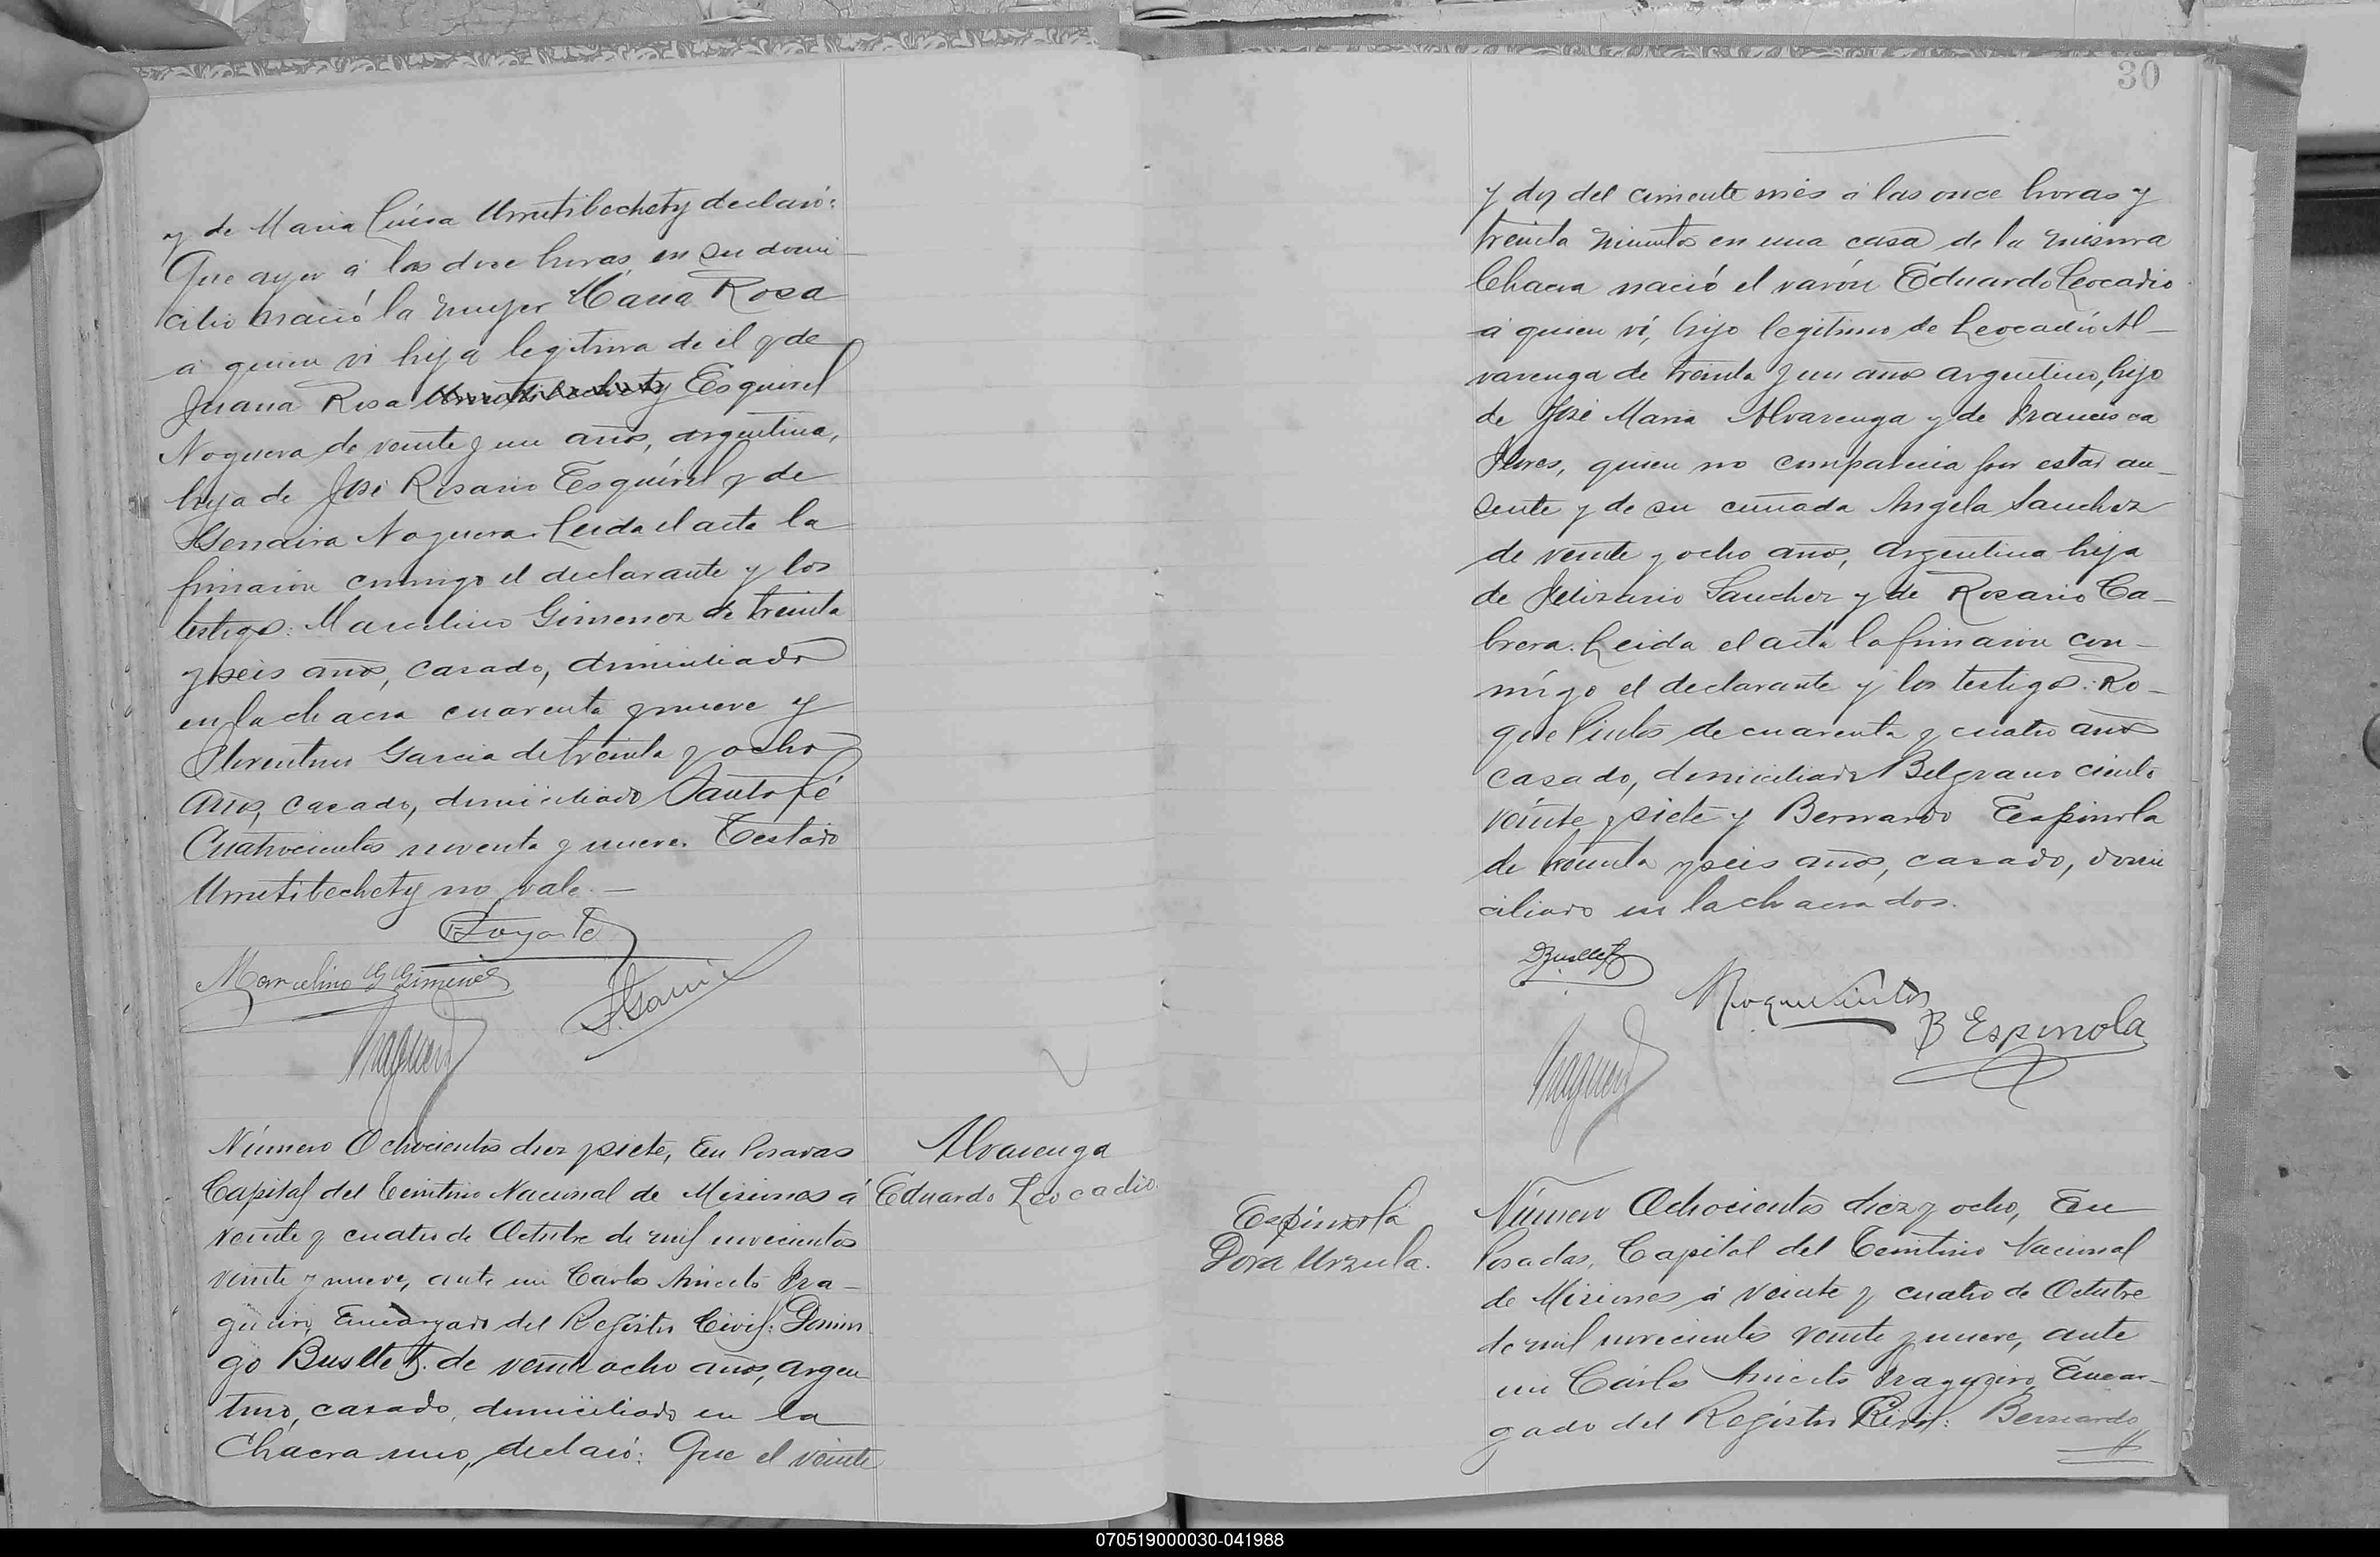 y de Maria Luisa Urrutibechety declaró:
Que ayer á las doce horas en su domi
cilio nació la mujer María Rosa
á quien vi hija legitima de él y de
Juana Rosa Urrutibechety Esquivel
Noguera de veinte y un años, argentina,
hija de José Rosario Esquivel y de
Genaira Noguera. Leida el acta la
firmaron conmigo el declarante y los
testigos: Marcelino Gimenez de treinta
y seis años, casado, domiciliado
en la chacra cuarenta y nueve y
Florentino Garcia de treinta y ocho
años, casado, domiciliado Santa fé
Cuatrocientos noventa y nueve. Testado
Urrutibechety no vale.—
Marcelino G Gimenez
F. Garcia
Número Ochocientos diez y siete, En Posadas
Capital del Territorio Nacional de Misiones á
veinte y cuatro de Octubre de mil novecientos
veinte y nueve, ante mi Carlos Aniceto Fra-
gueiro, Encargado del Registro Civil: Domin
go Busllet J. de veinte ocho años, argen
tino, casado, domiciliado en la
Chacra uno, declaró: Que el veinte
Alvarenga
Eduardo Leocadio.
30
y dos del corriente mes á las once horas y
treinta minutos en una casa de la misma
Chacra nació el varón Eduardo Leocadio
á quien ví, hijo legitimo de Leocadio Al-
varenga de treinta y un años argentino, hijo
de José María Alvarenga y de Francisca
Flores, quien no comparecia por estar au-
sente y de su cuñada Angela Sanchez
de veinte y ocho años, Argentina hija
de Felizario Sanchez y de Rosario Ca-
brera. Leida el acta la firmaron con-
migo el declarante y los testigos: Ro-
que Pintos de cuarenta y cuatro años
casado, domiciliado Belgrano ciento
veinte y siete y Bernardo Espinola
de treinta y seis años, casado, domi
ciliado en la chacra dos.
Roque Pintos
B Espinola
Espinola
Dora Urzula.
Número Ochocientos diez y ocho, En
Posadas, Capital del Territorio Nacional
de Misiones á veinte y cuatro de Octubre
de mil novecientos veinte y nueve, ante
mi Carlos Aniceto Fragueiro, Encar-
gado del Registro Civil: Bernardo
070519000030-041988